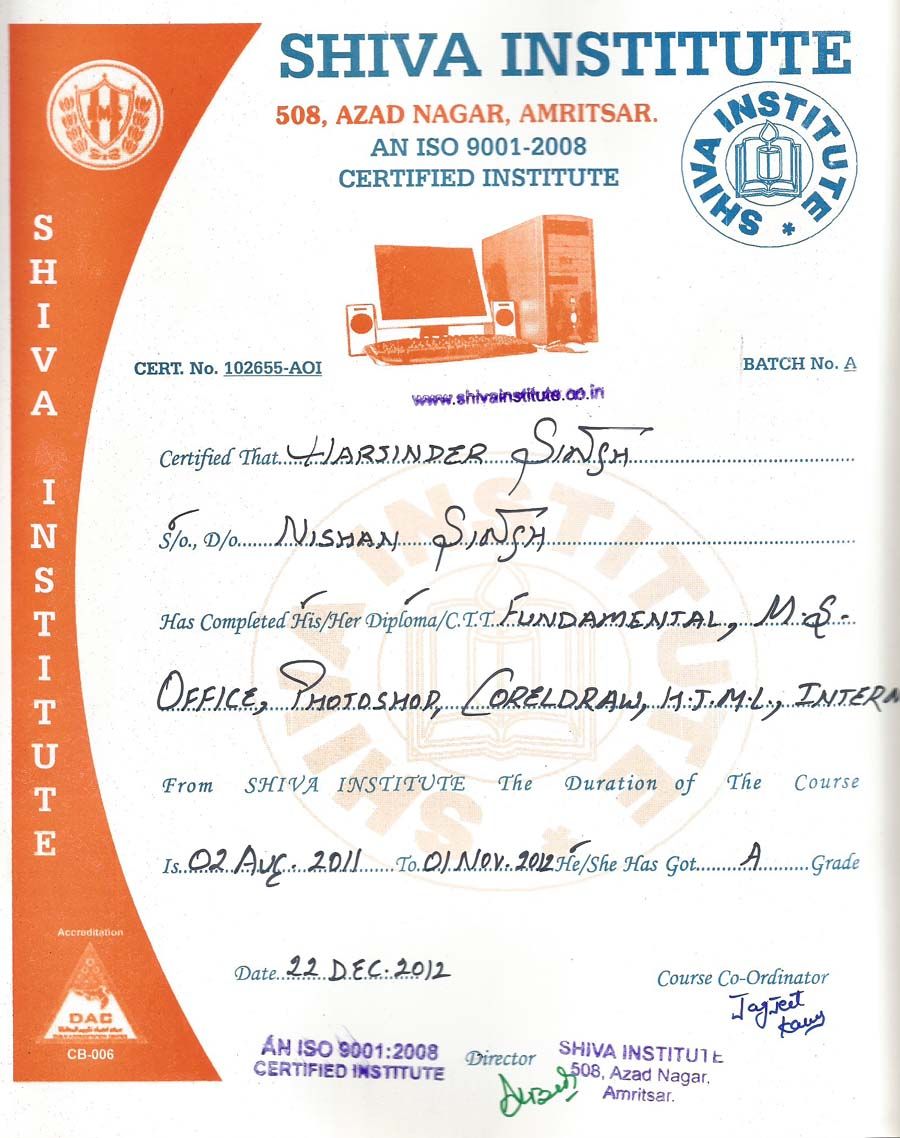 SHIVA INSTITUTE
508, AZAD NAGAR, AMRITSAR.
AN ISO 9001-2008
CERTIFIED INSTITUTE
SHIVA INSTITUTE
SHIVA INSTITUTE
CERT. No. 102655-AOI
BATCH No. A
www.shivainstitute.co.in
Certified That HARJINDER SINGH
S/o., D/o. NISHAN SINGH
Has Completed His/Her Diploma/C.T.T. FUNDAMENTAL, M.S.
OFFICE, PHOTOSHOP, CORELDRAW, H.T.M.L., INTERN
SHIVA INSTITUTE
From SHIVA INSTITUTE The Duration of The Course
Is 02 AUG. 2011 To 01 NOV. 2012 He/She Has Got A Grade
Date 22 DEC. 2012
Course Co-Ordinator
Jagjeet Kaur
Accreditation
DAC
CB-006
AN ISO 9001:2008
CERTIFIED INSTITUTE
Director
SHIVA INSTITUTE
508, Azad Nagar,
Amritsar.